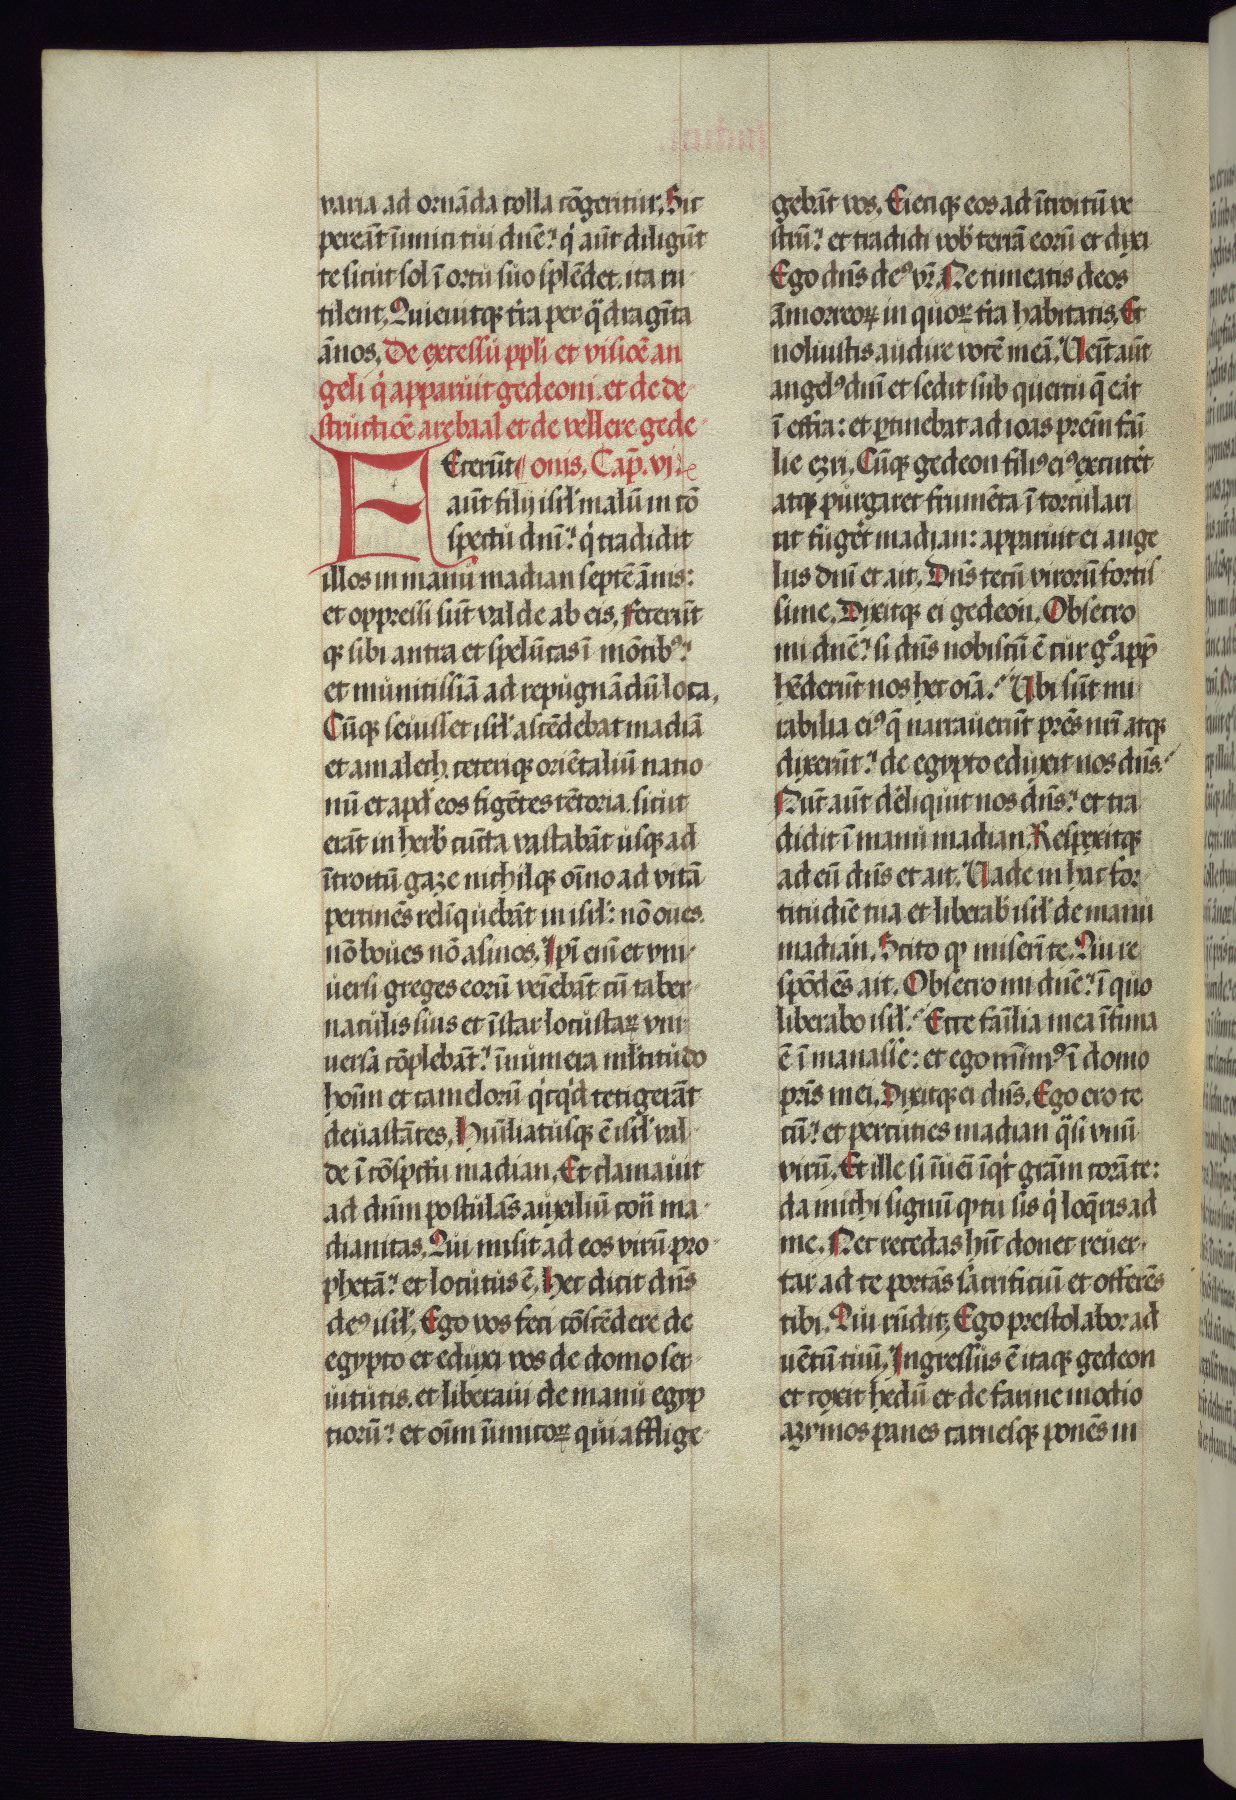 varia ad ornāda colla cōgeritur. Sic
pereāt īimici tui dn̄e? q̇ aūt diligūt
te sicut sol ī ortu suo splēdet. ita ru
tilent. Quieuitqꝫ tr̄a per q̈dragīta
ānos. De excessu ppl̄i et visiōe an
geli q̇ apparuit gedeoni. et de de
structiōe are baal et de vellere gede
onis. Cap̄. vi.
FEcerūt
aūt filij isrl̄ malū in cō
spectu dn̄i? q̇ tradidit
illos in manu madian septē ānis:
et oppressi sūt valde ab eis. Fecerūt
qꝫ sibi antra et spelūcas ī mōtibꝰ?
et munitissīa ad repugnādū loca.
Cūqꝫ seuisset isrl̄ ascēdebat madiā
et amalech. ceteriqꝫ oriētaliū natio
nū et apd̄ eos figētes tētoria. sicut
erāt in herb̄ cūcta vastabāt usqꝫ ad
ītroitū gaze nichilqꝫ oīno ad vitā
pertinēs relīquebāt in isrl̄: nō oues.
nō boues nō asinos. Ip̄i enī et vni
uersi greges eorū veīebāt cū taber
naculis suis et īstar locustaꝝ vni
uersa cōplebāt? īnumera ml̄titudo
hoīm et camelorū q̇cq̇d tetigerāt
deuastātes. Huīliatusqꝫ ē isrl̄ val
de ī cōspctu madian. Et clamauit
ad dn̄m postulās auxiliū con̄ ma
dianitas. Qui misit ad eos virū pro
phetā? et locutus ē. Hec dicit dn̄s
deꝰ isrl̄. Ego vos feci cōscēdere de
egypto et eduxi vos de domo ser
uitutis. et liberaui de manu egyp
tiorū? et oīm īimicoꝝ qui afflige
gebāt vos. Eieciqꝫ eos ad ītroitū ve
strū? et tradidi vob̄ terrā eorū et dixi
Ego dn̄s deꝰ vr̄. Ne timeatis deos
āmorreoꝝ in quoꝝ tr̄a habitatis. Et
noluistis audire vocē meā. Uēit aūt
angelꝰ dn̄i et sedit sub quercu q̄ eāt
ī effra: et ꝑtinebat ad ioas prēm fāi
lie ezri. Cūqꝫ gedeon filiꝰ eiꝰ excutēt
atqꝫ purgaret frumēta ī torculari
ut fugēt madian: apparuit ei ange
lus dn̄i et ait. Dn̄s tecū virorū fortis
sime. Dixitqꝫ ei gedeon. Obsecro
mi dn̄e? si dn̄s nobiscū ē cur gͦ app̄
hēderūt nos hec oīa? Ubi sūt mi
rabilia eiꝰ q̄ narrauerūt prēs nr̄i atqꝫ
dixerūt? de egypto eduxit nos dn̄s?
Nūc aūt dēliquit nos dn̄s? et tra
didit ī manu madian. Respexitqꝫ
ad eū dn̄s et ait. Uade in hac for
titudīe tua et liberab̄ isrl̄ de manu
madian. Scito qꝫ miserī te. Qui re
spōdēs ait. Obsecro mi dn̄e? ī quo
liberabo isrl̄? Ecce faīlia mea īfima
ē ī manasse: et ego mīmꝰ ī domo
pr̄is mei. Dixitqꝫ ei dn̄s. Ego ero te
cū? et percuties madian q̈si vnū
virū. Et ille si īueī īq̇t grām corā te:
da michi signū qꝫ tu sis q̇ loq̄ris ad
me. Nec recedas hīc donec reuer
tar ad te portās sacrificiū et offerēs
tibi. Qui rn̄dit. Ego prestolabor ad
uētū tuū. Ingressus ē itaqꝫ gedeon
et coxit hedū et de farine modio
azymos panes carnesqꝫ ponēs in